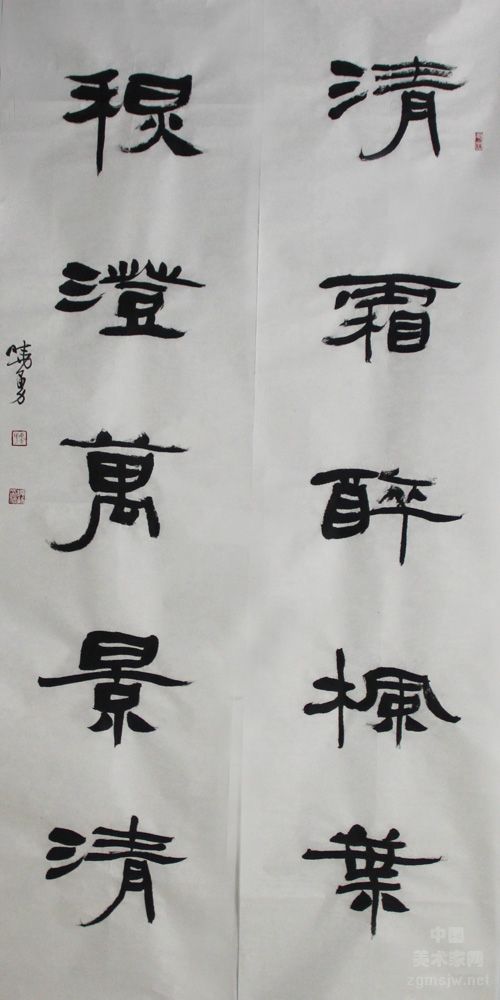 清霜醉楓葉
秋澄萬景清
曉勇
中国
美术家网
zgmsjw.net